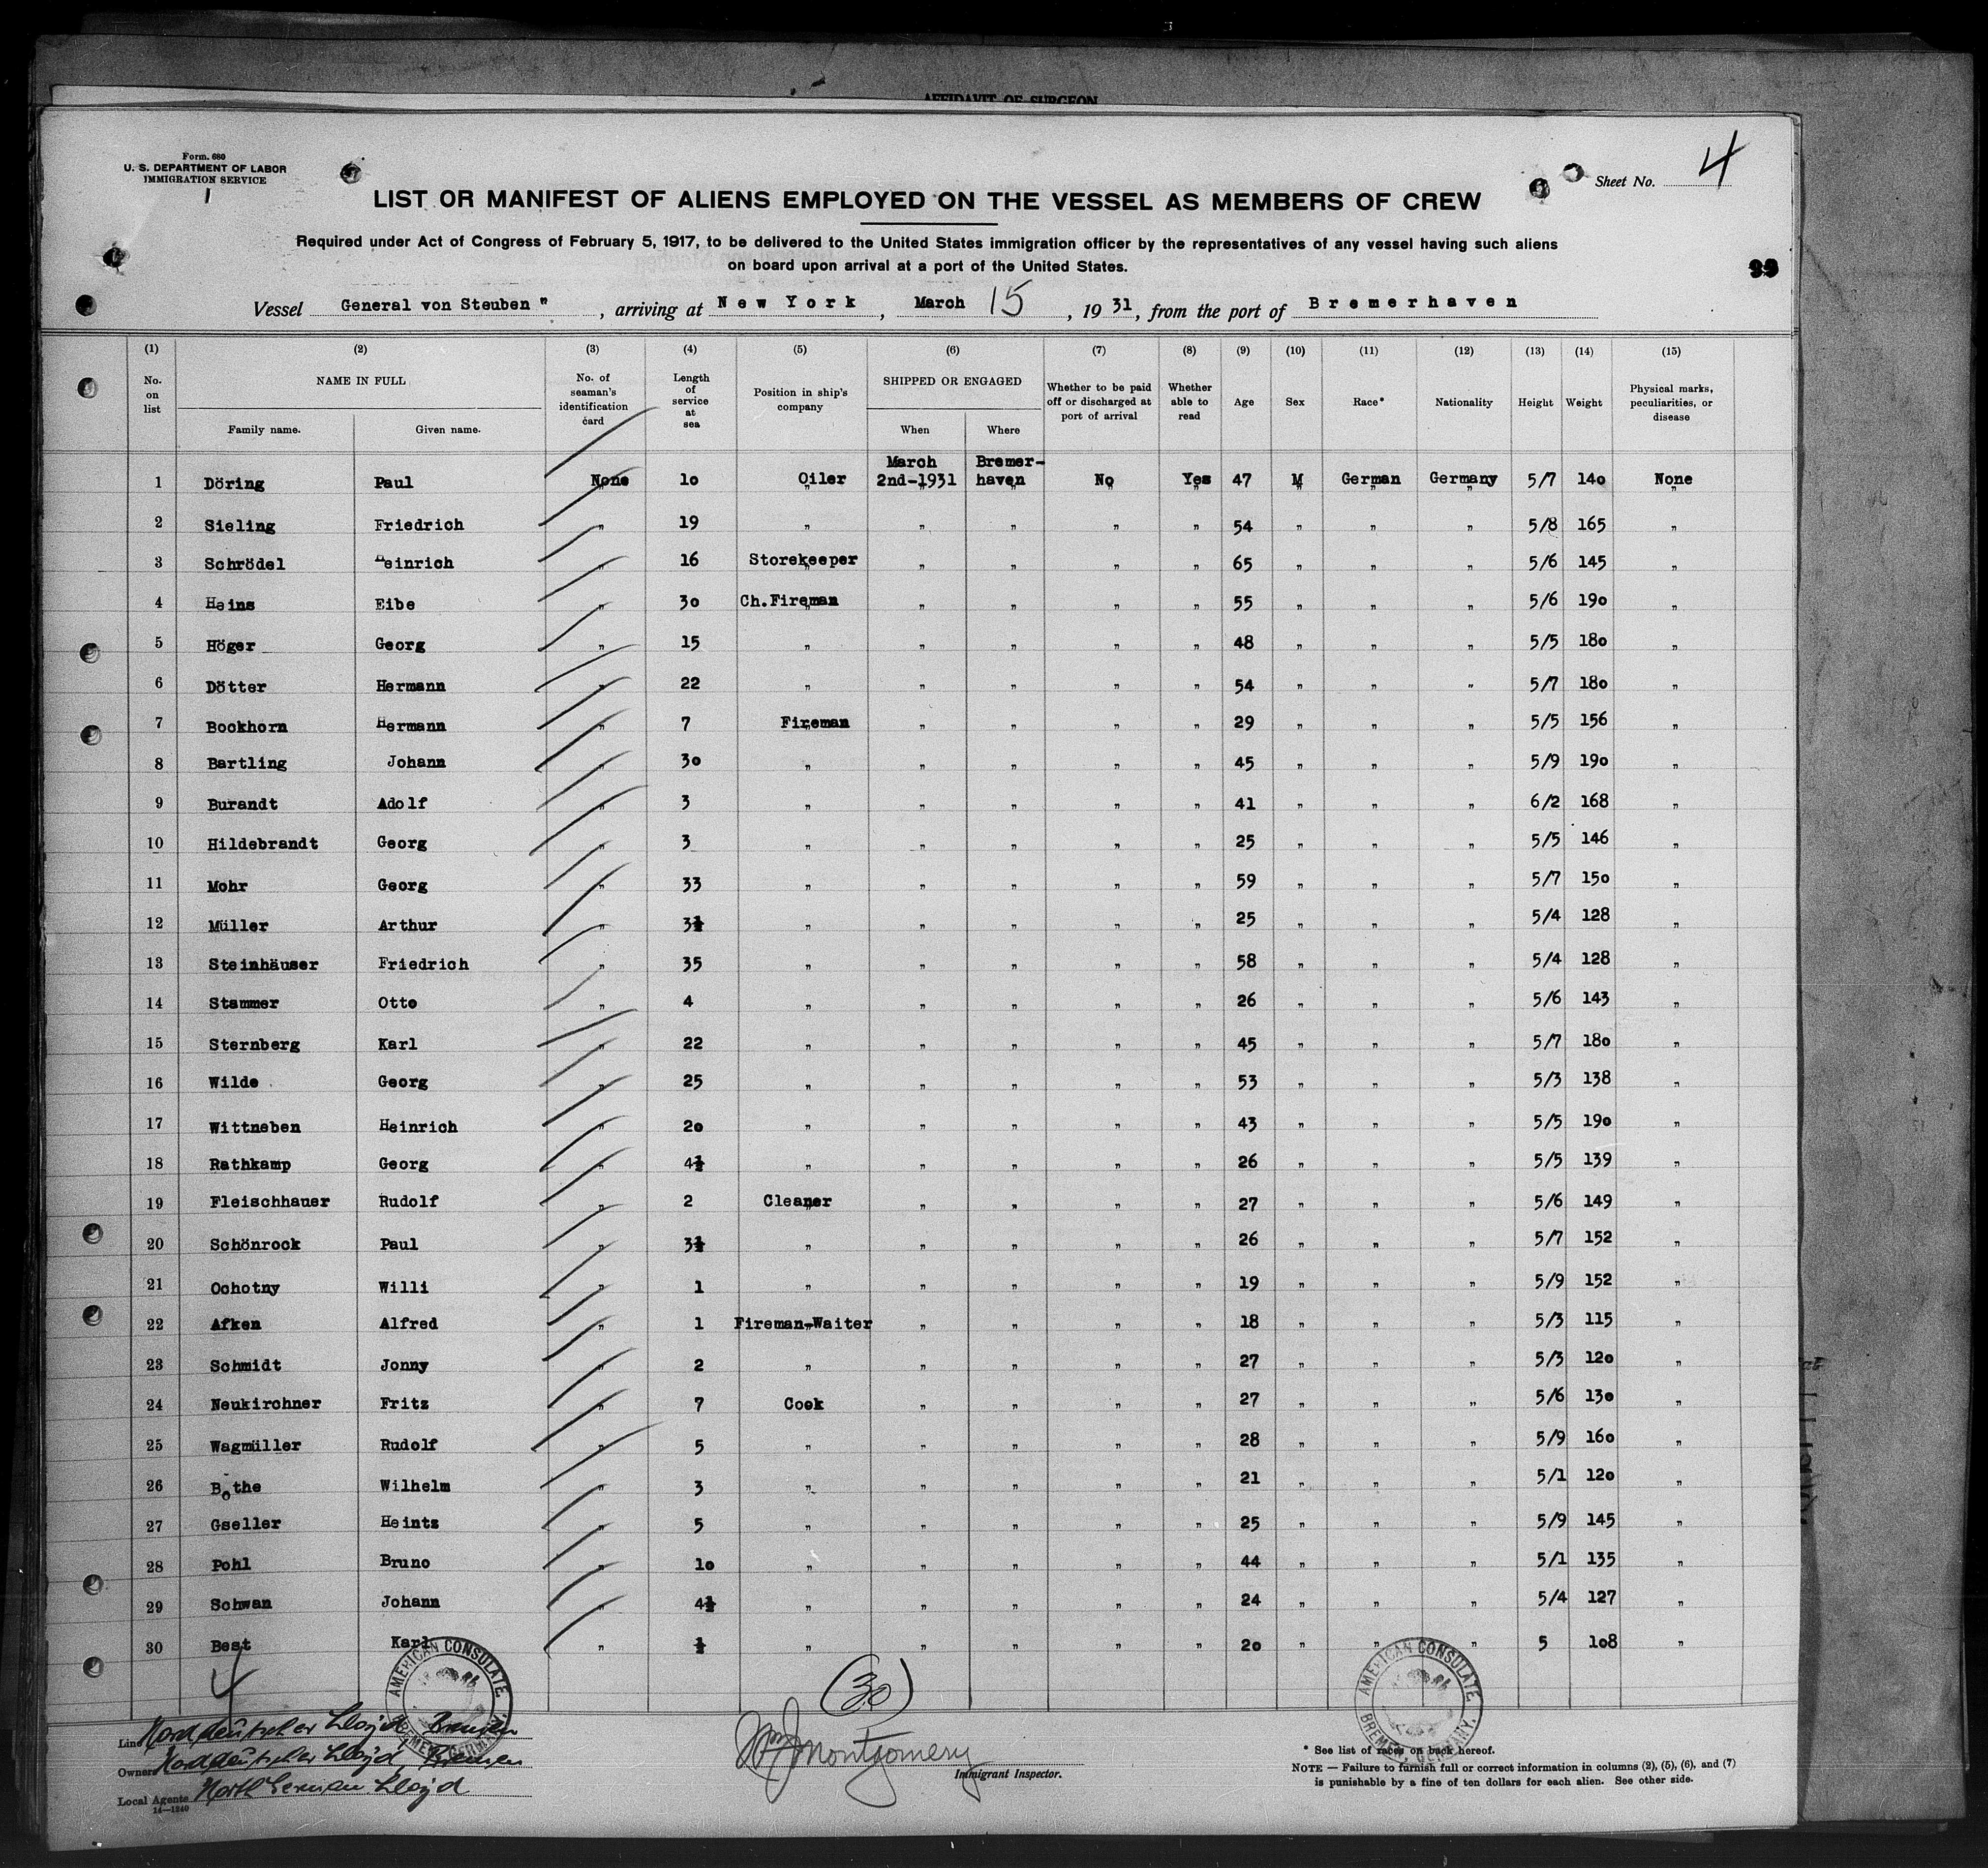 AFFIDAVIT OF SURGEON
Form. 680
U. S. DEPARTMENT OF LABOR
IMMIGRATION SERVICE
Sheet No. 4
LIST OR MANIFEST OF ALIENS EMPLOYED ON THE VESSEL AS MEMBERS OF CREW
Required under Act of Congress of February 5, 1917, to be delivered to the United States immigration officer by the representatives of any vessel having such aliens
on board upon arrival at a port of the United States.
99
Vessel General von Steuben" , arriving at New York , March 15 , 19 31, from the port of Bremerhaven
(1) (2) (3) (4) (5) (6) (7) (8) (9) (10) (11) (12) (13) (14) (15)
No. on list NAME IN FULL Family name. Given name. No. of seaman's identification card Length of service at sea Position in ship's company SHIPPED OR ENGAGED When Where Whether to be paid off or discharged at port of arrival Whether able to read Age Sex Race* Nationality Height Weight Physical marks, peculiarities, or disease
1 Döring Paul None 10 Oiler March 2nd-1931 Bremer-haven No Yes 47 M German Germany 5/7 140 None
2 Sieling Friedrich " 19 " " " " " 54 " " " 5/8 165 "
3 Schrödel Heinrich " 16 Storekeeper " " " " 65 " " " 5/6 145 "
4 Heins Eibe " 30 Ch.Fireman " " " " 55 " " " 5/6 190 "
5 Höger Georg " 15 " " " " " 48 " " " 5/5 180 "
6 Dötter Hermann " 22 " " " " " 54 " " " 5/7 180 "
7 Bockhorn Hermann " 7 Fireman " " " " 29 " " " 5/5 156 "
8 Bartling Johann " 30 " " " " " 45 " " " 5/9 190 "
9 Burandt Adolf " 3 " " " " " 41 " " " 6/2 168 "
10 Hildebrandt Georg " 3 " " " " " 25 " " " 5/5 146 "
11 Mohr Georg " 33 " " " " " 59 " " " 5/7 150 "
12 Müller Arthur " 3½ " " " " " 25 " " " 5/4 128 "
13 Steinhäuser Friedrich " 35 " " " " " 58 " " " 5/4 128 "
14 Stammer Otto " 4 " " " " " 26 " " " 5/6 143 "
15 Sternberg Karl " 22 " " " " " 45 " " " 5/7 180 "
16 Wilde Georg " 25 " " " " " 53 " " " 5/3 138 "
17 Wittneben Heinrich " 20 " " " " " 43 " " " 5/5 190 "
18 Rathkamp Georg " 4½ " " " " " 26 " " " 5/5 139 "
19 Fleischhauer Rudolf " 2 Cleaner " " " " 27 " " " 5/6 149 "
20 Schönrock Paul " 3½ " " " " " 26 " " " 5/7 152 "
21 Ochotny Willi " 1 " " " " " 19 " " " 5/9 152 "
22 Afken Alfred " 1 Fireman-Waiter " " " " 18 " " " 5/3 115 "
23 Schmidt Jonny " 2 " " " " " 27 " " " 5/3 120 "
24 Neukirchner Fritz " 7 Cook " " " " 27 " " " 5/6 130 "
25 Wagmüller Rudolf " 5 " " " " " 28 " " " 5/9 160 "
26 Bothe Wilhelm " 3 " " " " " 21 " " " 5/1 120 "
27 Gseller Heintz " 5 " " " " " 25 " " " 5/9 145 "
28 Pohl Bruno " 10 " " " " " 44 " " " 5/1 135 "
29 Schwan Johann " 4½ " " " " " 24 " " " 5/4 127 "
30 Best Karl " ½ " " " " " 20 " " " 5 108 "
4
(30)
AMERICAN CONSULATE
BREMEN, GERMANY.
AMERICAN CONSULATE
BREMEN, GERMANY.
Line Norddeutscher Lloyd, Bremen
Owners Norddeutscher Lloyd, Bremen
Local Agents North German Lloyd
14—1240
Wm J Montgomery
Immigrant Inspector.
* See list of races on back hereof.
NOTE — Failure to furnish full or correct information in columns (2), (5), (6), and (7)
is punishable by a fine of ten dollars for each alien. See other side.